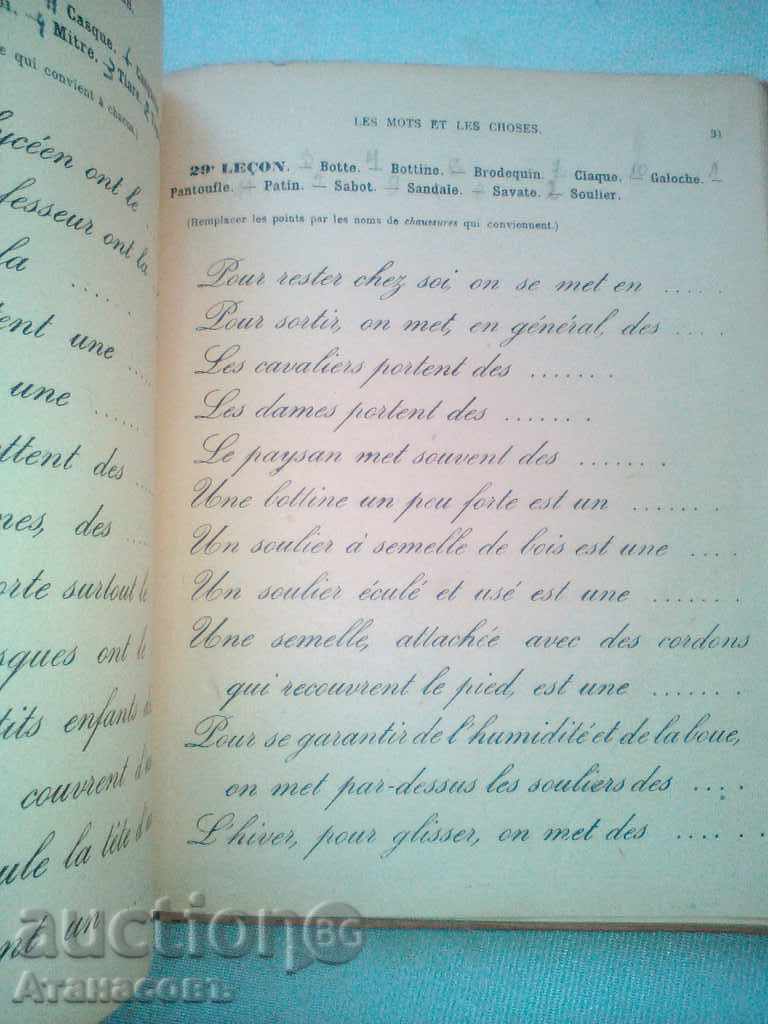 Casque.
Mitre. 3 Tiare.
qui convient à chacun.)
lycéen ont le .
fesseur ont la
la ......
ent une ....
une ......
ttent des ....
mes, des ....
orte surtout le
sques ont le
tits enfants
couvrent d
ule la tête d
ent un ...
LES MOTS ET LES CHOSES. 31
29e LEÇON. — Botte. — Bottine. — Brodequin. — Claque. — Galoche. —
Pantoufle. — Patin. — Sabot. — Sandale. — Savate. — Soulier.
(Remplacer les points par les noms de chaussures qui conviennent.)
Pour rester chez soi, on se met en .....
Pour sortir, on met, en général, des ....
Les cavaliers portent des .......
Les dames portent des .......
Le paysan met souvent des .......
Une bottine un peu forte est un .......
Un soulier à semelle de bois est une ....
Un soulier éculé et usé est une .......
Une semelle, attachée avec des cordons
qui recouvrent le pied, est une .......
Pour se garantir de l'humidité et de la boue,
on met par-dessus les souliers des ....
L'hiver, pour glisser, on met des ......
auction BG
Атанасовъ